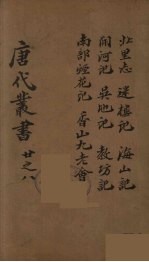 北里志 迷樓記 海山記
開河記 吳地記 教坊記
南部煙花記 香山九老會
唐代叢書 廿之八